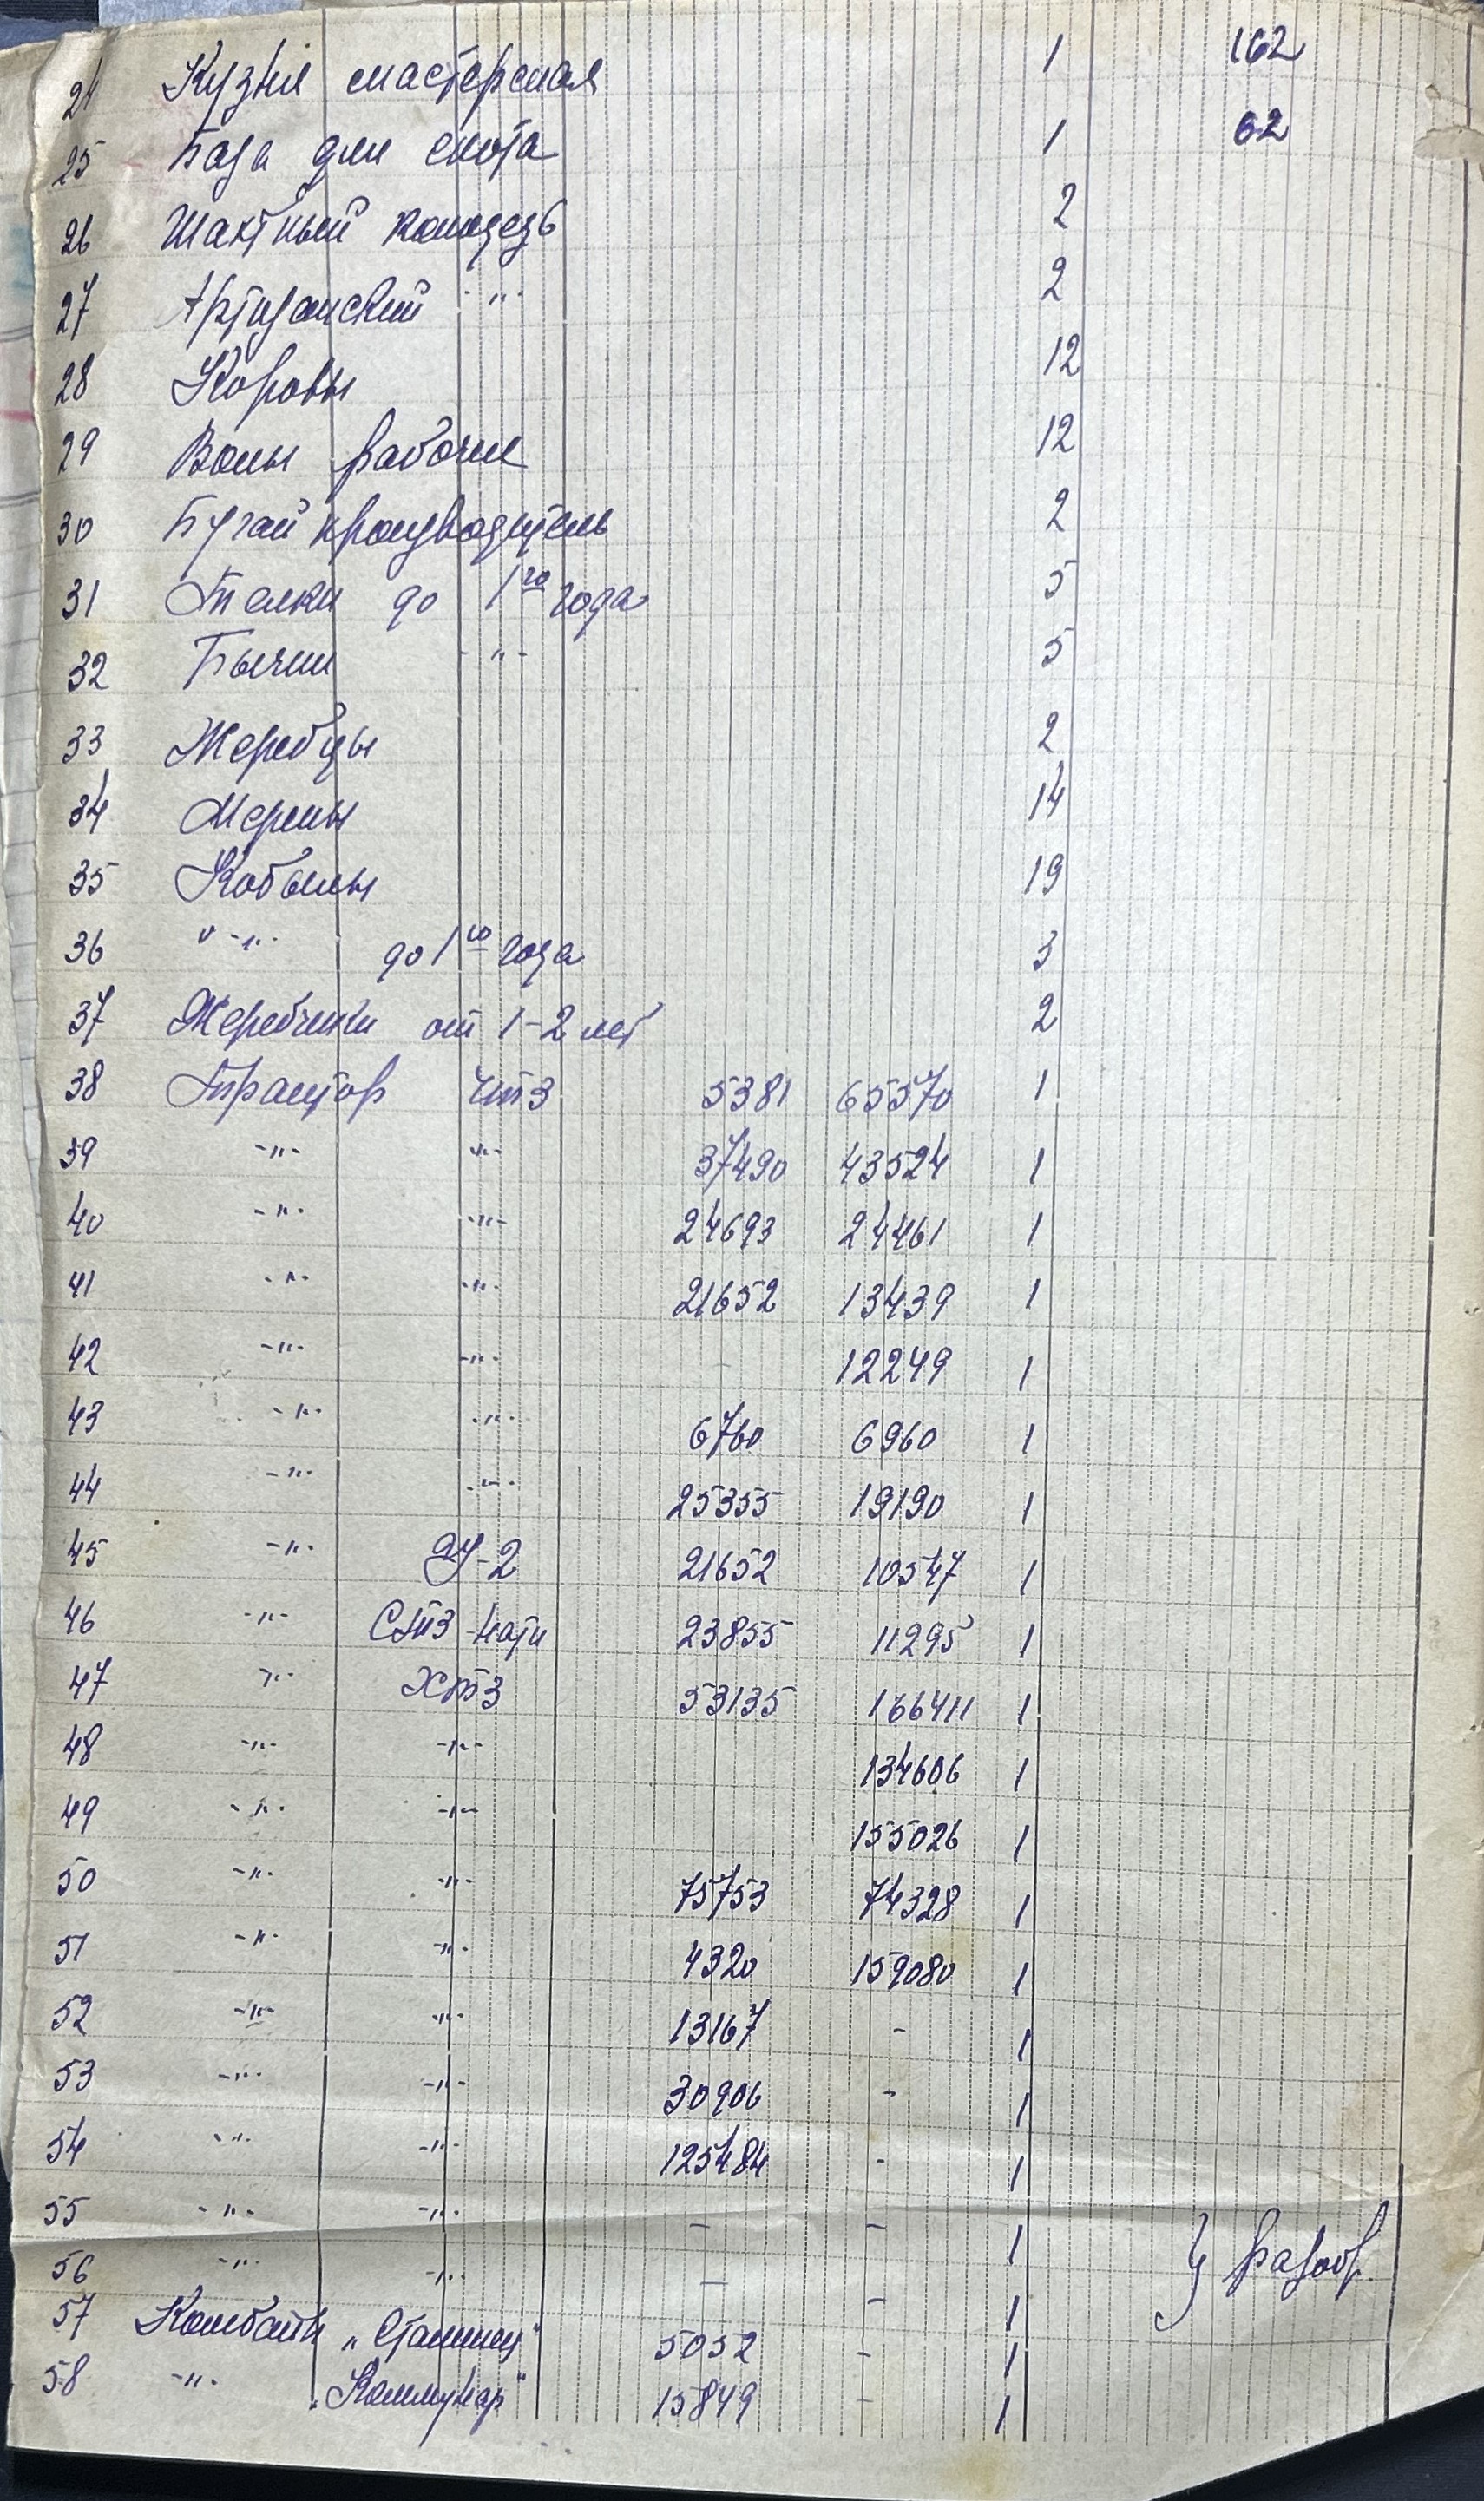 24 Кузня мастерская 1 162
25 База для скота 1 62
26 Шахтный колодезь 2
27 Артизанский -"- 2
28 Коровы 12
29 Волы рабочие 12
30 Бугай производитель 2
31 Телки до 1го года 5
32 Бычки -"- 5
33 Жеребцы 2
34 Мерины 14
35 Кобылы 19
36 " -"- до 1го года 3
37 Жеребчики от 1-2 лет 2
38 Трактор ЧТЗ 5381 65570 1
39 -"- -"- 37490 43524 1
40 -"- -"- 24693 24461 1
41 -"- -"- 21652 13439 1
42 -"- -"- 12249 1
43 -"- -"- 6760 6960 1
44 -"- -"- 25355 19190 1
45 -"- У-2 21652 10547 1
46 -"- СТЗ-Нати 23855 11295 1
47 -"- ХТЗ 53135 166411 1
48 -"- -"- 134606 1
49 -"- -"- 155026 1
50 -"- -"- 75753 74328 1
51 -"- -"- 4320 159080 1
52 -"- -"- 13167 - 1
53 -"- -"- 30906 - 1
54 -"- -"- 125484 - 1
55 -"- -"- - - 1
56 -"- -"- - - 1 } разобр.
57 Комбайн „Сталинец" 5052 - 1
58 -"- „Коммунар" 15849 - 1